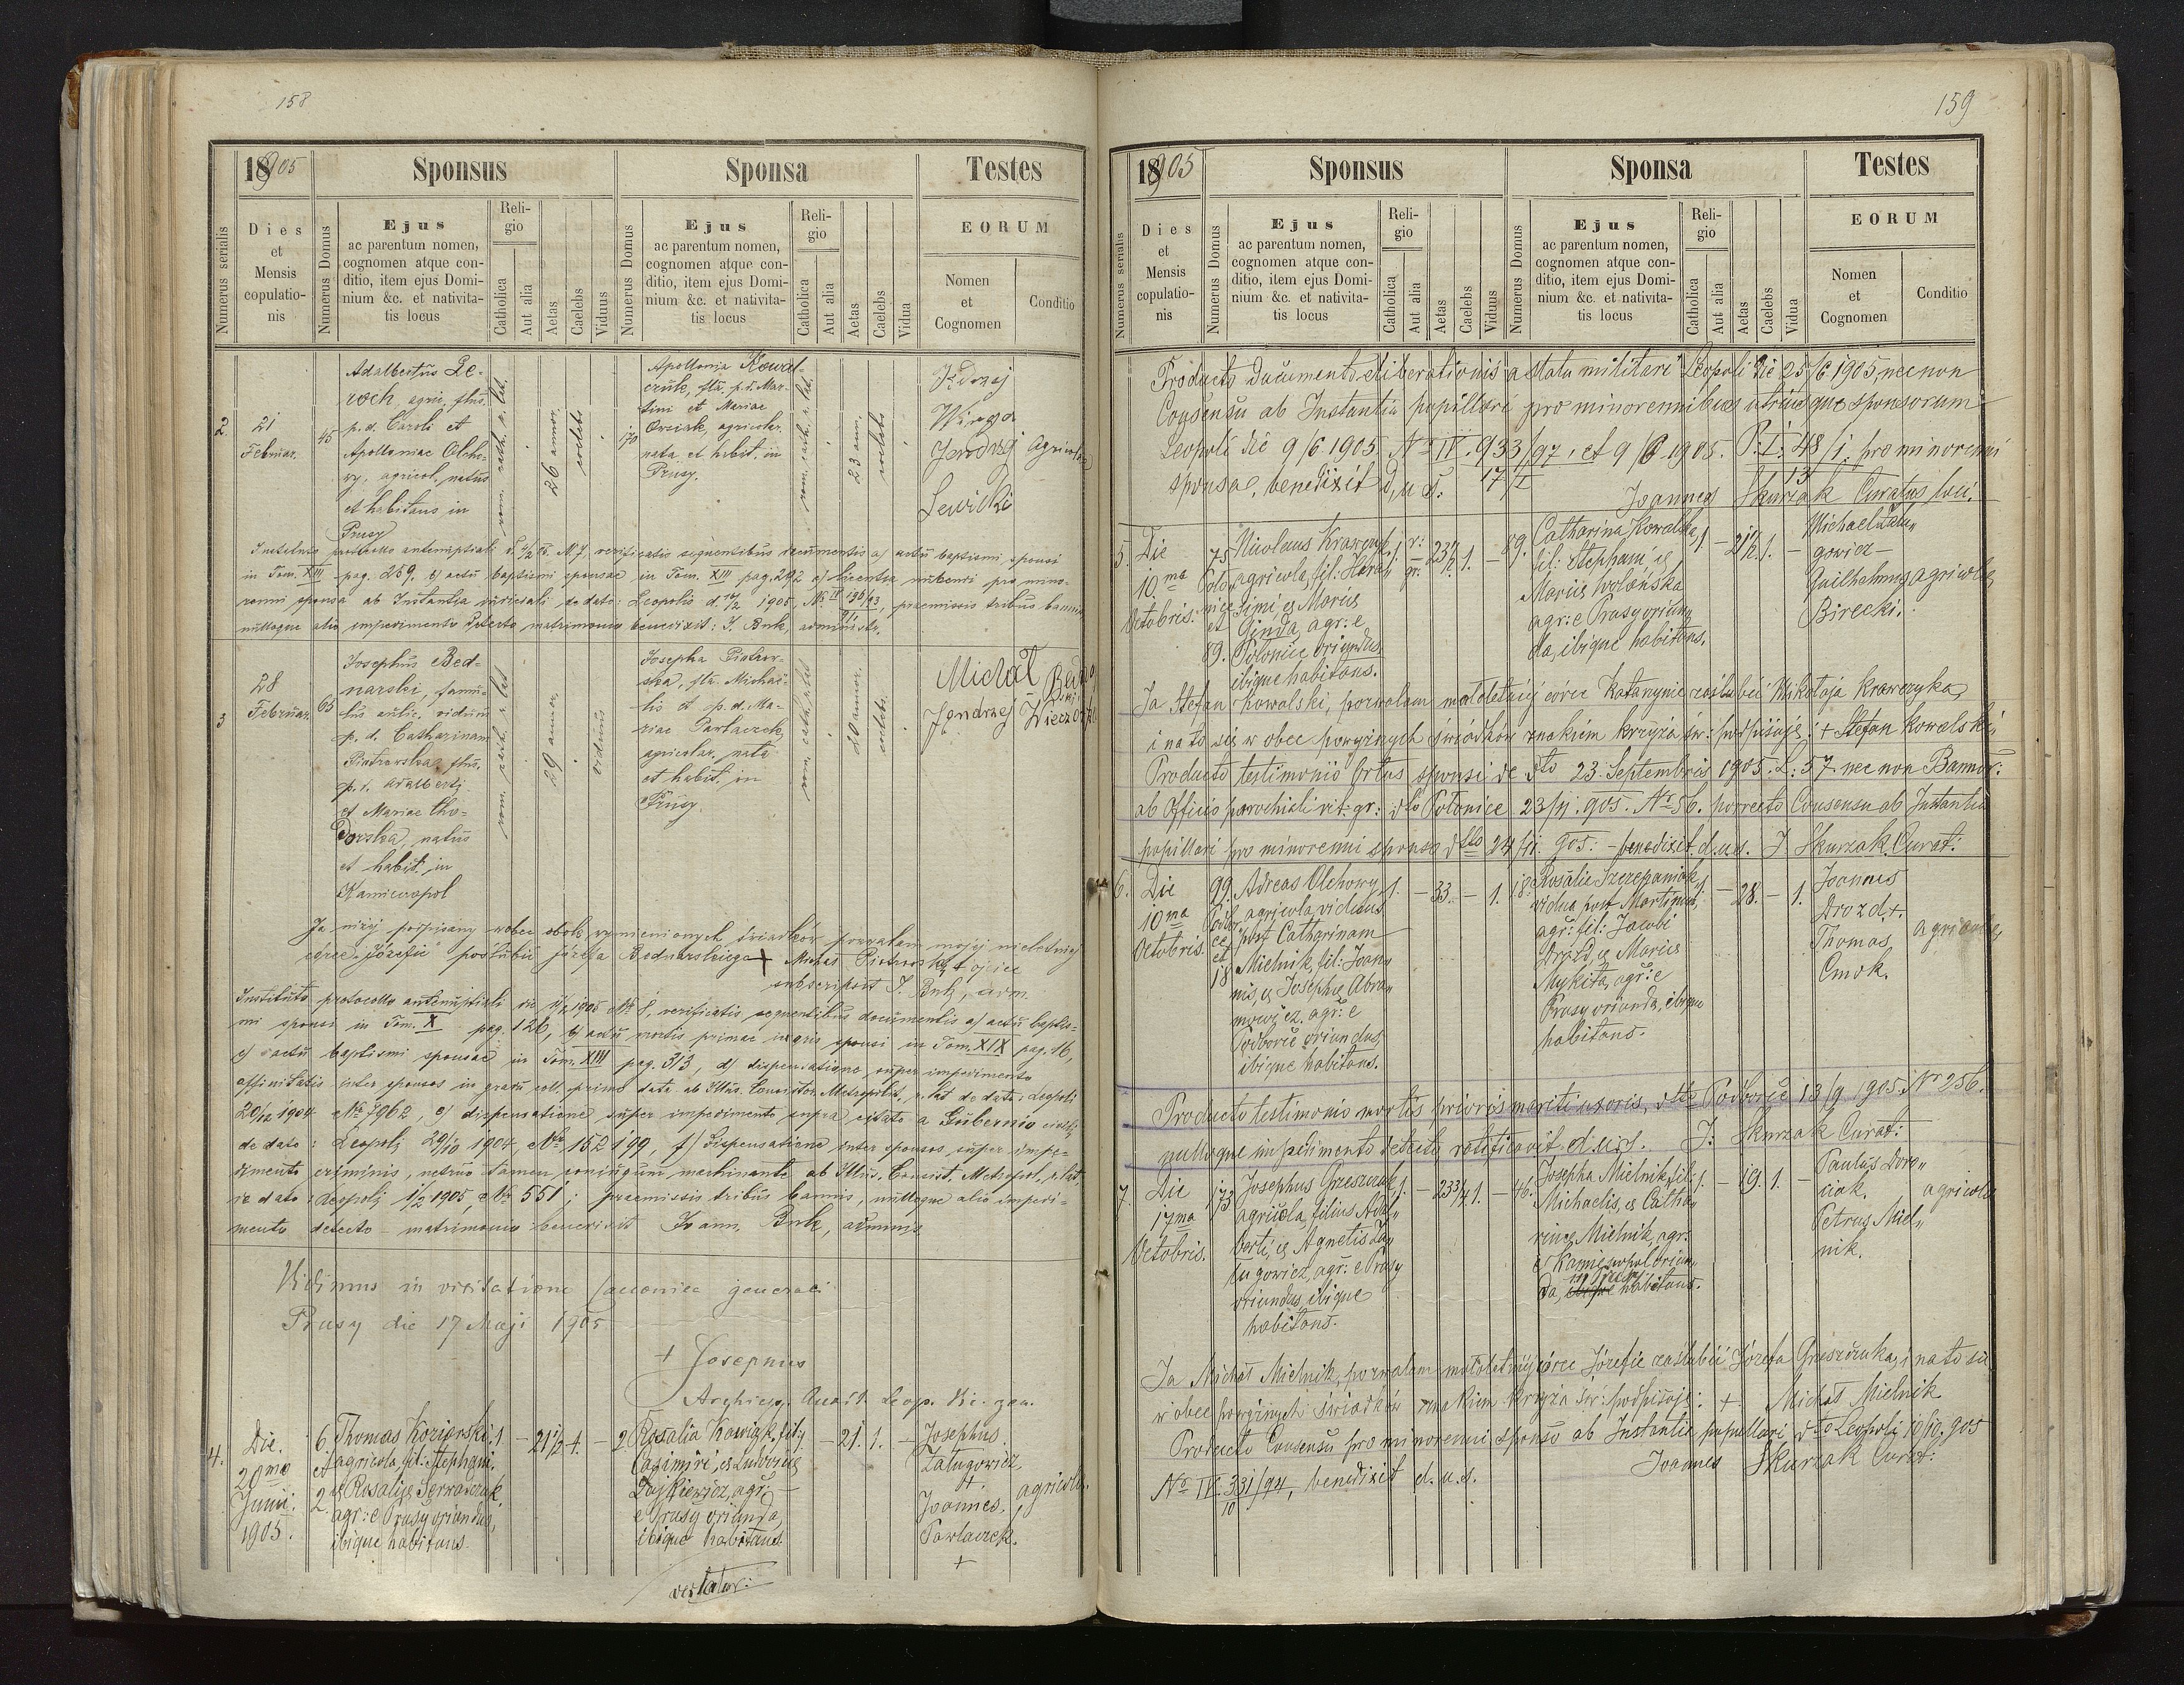 158
18905 Sponsus Sponsa Testes
Numerus serialis
Dies
et
Mensis
copulatio-
nis
Numerus Domus
Ejus
ac parentum nomen,
cognomen atque con-
ditio, item ejus Domi-
nium &c. et nativita-
tis locus
Reli-
gio
Catholica
Aut alia
Aetas
Caelebs
Viduus
Numerus Domus
Ejus
ac parentum nomen,
cognomen atque con-
ditio, item ejus Domi-
nium &c. et nativita-
tis locus
Reli-
gio
Catholica
Aut alia
Aetas
Caelebs
Vidua
EORUM
Nomen
et
Cognomen
Conditio
2.
21
Februar.
45
Adalbertus Le-
roch, agric. flus.
p. d. Caroli et
Apolloniae Olcho-
wy, agricol. natus
et habitans in
Prusy
rom. cath. r. lat.
26 annor.
coelebs
170
Apollonia Kowal-
czuk, fla. p. d. Mar-
tini et Mariae
agricolar.
nata et habit. in
Prusy.
rom. cath. r. lat.
23 ann.
coelebs
Jędrzej
Winga
Jendrzej agricolae
Lewicki
Instituto protocollo antenuptiali d. 4/2 N. 7, verificatis sequentibus documentis a) actu baptismi sponsi
in Tom. XIII pag. 259. b) actu baptismi sponsae in Tom. XIII pag. 292 c) licentia nubendi pro mino-
renni sponsa ab Instantia judiciali de dato: Leopolis d. 1905, praemissis tribus bannis
nulloque alio impedimento detecto matrimonio benedixit: J. Buk, administr.
3
28
Februar.
65
Josephus Bed-
narski, famu-
lus aulic. viduus
p. d. Catharinam
Piotrowska, flus.
p. d. Adalberti
et Mariae Cho-
dorska, natus
et habit. in
Kamienopol
rom. cath. r. lat
29 annor.
viduus
Josepha Piotrow-
ska, fla. Michae-
lis et p. d. Ma-
riae Pawlaczek,
agricolar. nata
et habit. in
Prusy.
rom. cath. r. lat
20 annor.
coelebs.
Michał
Jendrzej
Ja niżej podpisany wobec obok wymienionych świadków pozwalam mojej nieletniej
córce Józefie poślubić Józefa Bednarskiego + Michał Piotrowski + ojciec
subscripsit J. Buk, adm.
Instituto protocollo antenuptiali 1905 No 8, verificatis sequentibus documentis a) actu baptis-
mi sponsi in Tom. X pag. 126, b) actu mortis primae uxoris sponsi in Tom. XIX pag. 16,
c) actu baptismi sponsae in Tom. XIII pag. 313, d) dispensatione super impedimento
affinitatis inter sponsos in gradu coll. primo data ab Illus. Consistor. Metropolit. r. lat. de dato: Leopoli
20/12 1904 No 7962, e) dispensatione super impedimento supra citato a Gubernio civili
de dato: Leopoli 29/10 1904 No 152199, f) dispensatione inter sponsos super impe-
dimento criminis, neutro tamen coniugum machinante ab Illus. Consist. Metropol. r. lat.
de dato: Leopoli 1/2 1905, No 551; praemissis tribus bannis, nulloque alio impedi-
mento detecto – matrimonio benedixit Joann. Buk, adminis.
Vidimus in visitatione canonica generali
Prusy die 17 Maji 1905
+ Josephus
4.
Die
20ma
Junii.
1905.
6
et
2
Thomas Koziorski
agricola, fil: Stephani,
et Rosaliae Serwaczak,
agr: e Prusy oriundus,
ibique habitans.
1. – 21 1/2 1. –
2
Rosalia Kawczak, fil:
Casimiri, et Ludovicae
Dajkiewicz, agr: –
e Prusy orianda,
ibique habitans
1. – 21. 1. –
Josephus
Zalugowicz
+
Joannes.
Pawlaczek.
+
agricolae.
vertatur:
159
18905 Sponsus Sponsa Testes
Numerus serialis
Dies
et
Mensis
copulatio-
nis
Numerus Domus
Ejus
ac parentum nomen,
cognomen atque con-
ditio, item ejus Domi-
nium &c. et nativita-
tis locus
Reli-
gio
Catholica
Aut alia
Aetas
Caelebs
Vidus
Numerus Domus
Ejus
ac parentum nomen,
cognomen atque con-
ditio, item ejus Domi-
nium &c. et nativita-
tis locus
Reli-
gio
Catholica
Aut alia
Aetas
Caelebs
Vidua
EORUM
Nomen
et
Cognomen
Conditio
Producto documento eliberationis a statu militari Leopoli die 25/6 1905, nec non
Consensu ab Instantia pupillari pro minorennibus utriusque sponsorum
Leopoli die 9/6 1905. No IV. 933/97, et 9/6 1905. P. I. 48/1. pro minorenni
17/I 13
sponsae, benedixit d. u. s. Joannes Skurzak Curatus loci.
5.
Die
10.ma
Octobris.
75
et
89.
Nicolaus Krawczyk
agricola, fil: Hera-
simi et Mariae
Ginda, agr: e
Polonice oriundus
ibique habitans.
1. r: gr: – 23 1/2 1. –
89.
Catharina Kowalska,
fil: Stephani, et
Mariae Wolańska
agr: e Prusy oriun-
da, ibique habitans.
1. – 21 1/2 1. –
Michael Zalu-
gowicz –
Guilhelmus agricolae
Birecki.
Ja Stefan Kowalski, pozwalam małoletniej córce Katarzynie zaślubić Mikołaja Krawczyka,
i na to się w obec powyższych świadków znakiem krzyża św: podpisuję: + Stefan Kowalski
Producto testimonio Ortus sponsi de dto 23. Septembris 1905. L: 57. nec non Bannor:
ab Officio parochiali rit: gr: dto Polonice 905. No 56. porrecto Consensu ab Instantia
pupillari pro minorenni sponsa dto 24 905. – benedixit d. u. s. J Skurzak. Curat:
6.
Die
10ma
Octobris.
99.
et
18
Adreas Olchowy
agricola, viduus
post Catharinam
Mielnik, fil: Joan-
nis, et Josephae Abra-
mowicz, agr: e
Podborce oriundus,
ibique habitans.
1. – 33. – 1.
18.
Rosalia Szczepaniak
vidua post Martinum,
agr: fil: Jacobi
Drozd, et Mariae
Mykita, agr: e
Prusy orianda, ibique
habitans.
1. – 28. – 1.
Joannes
Drozd. +.
Thomas
Cmok.
agricolae
Producto testimonio mortis prioris mariti uxoris, dto Podborce 13/9 1905. No 256.
nulloque impedimento detecto ratificavit d. u. s. J: Skurzak Curat:
7.
Die
17ma
Octobris.
173
Josephus Grzeszczak
agricola, filius Adal-
berti, et Agnetis Za-
lugowicz, agr: e Prusy
oriundus, ibique
habitans.
1. – 23 3/4 1. –
46.
Josepha Mielnik, fil:
Michaelis, et Catha-
rinae Mielnik, agr:
e Kamienopol oriun-
da, ibique in Prusy habitans.
1. – 19. 1. –
Paulus Doro-
ciak.
Petrus Miel-
nik.
agricolae
Ja Michał Mielnik, pozwalam małoletniej córce Józefie zaślubić Józefa Grzeszczuka, i na to się
w obec powyższych świadków znakiem krzyża św: podpisuję: + Michał Mielnik
Producto Consensu pro minorenni sponso ab Instantia pupillari dto Leopoli, 10/10. 905
No IV. 331/94, benedixit d. u. s. Joannes Skurzak Curat:
10